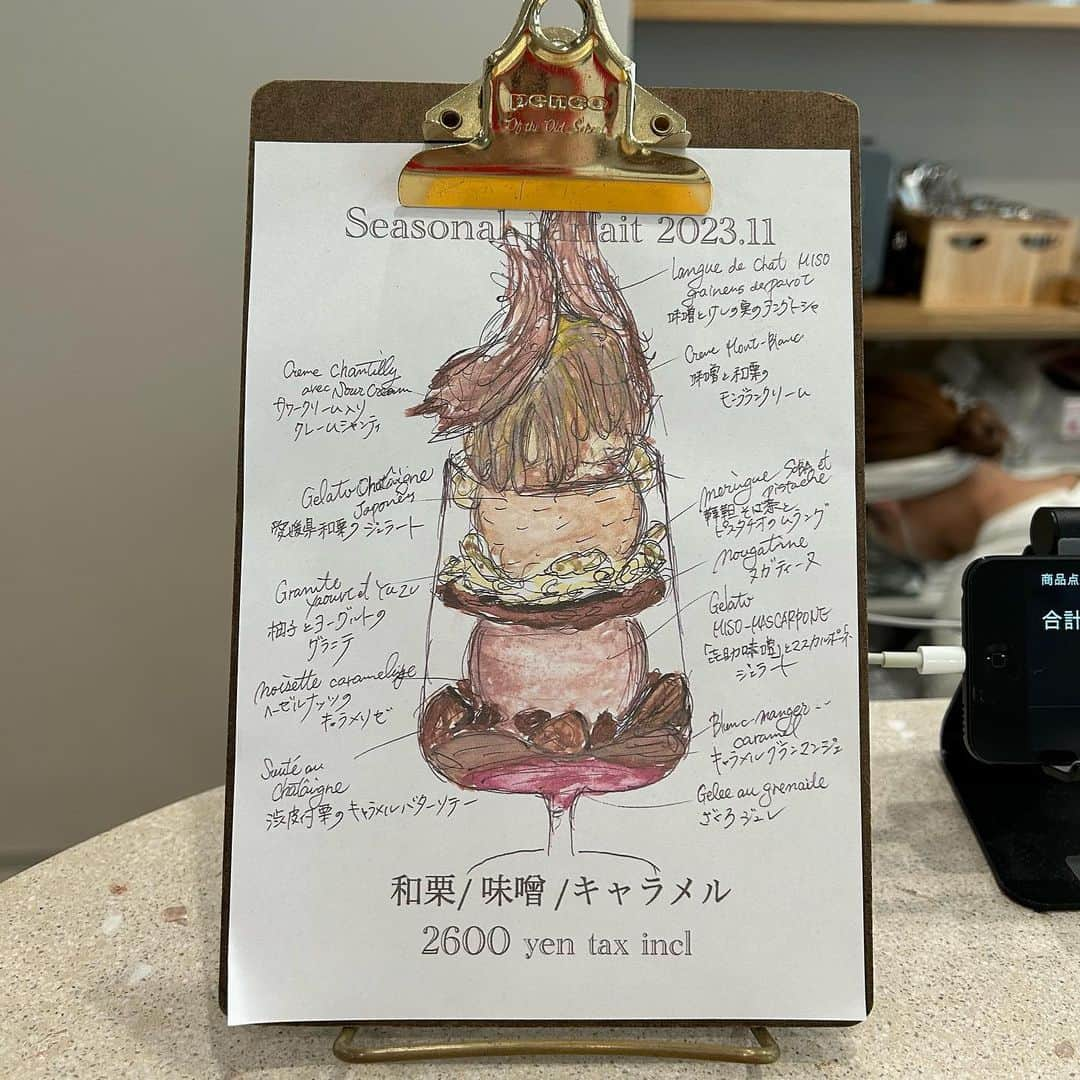 penco
Of the Old School
Seasonal parfait 2023.11
Langue de Chat MISO
grainens de pavot
味噌とけしの実のラングドシャ
Creme Chantilly
avec Sour Cream
サワークリーム入り
クレームシャンティ
Creme Mont-Blanc
味噌と和栗の
モンブランクリーム
Gelato Chataigne
Japoneis
愛媛県和栗のジェラート
meringue Soba et
pistache
韃靼そば茶と
ピスタチオのムラング
nougatine
ヌガティーヌ
Granite
yaourt et Yuzu
柚子とヨーグルトの
グラニテ
Gelato
MISO-MASCARPONE
味噌」とマスカルポーネ
ジェラート
noisette caramelize
ヘーゼルナッツの
キャラメリゼ
Blanc-manger
caramel
キャラメルブランマンジェ
Sauté au
chataigne
渋皮付栗のキャラメルバターソテー
Gelee au grenade
ざくろジュレ
和栗/味噌/キャラメル
2600 yen tax incl
商品点
合計